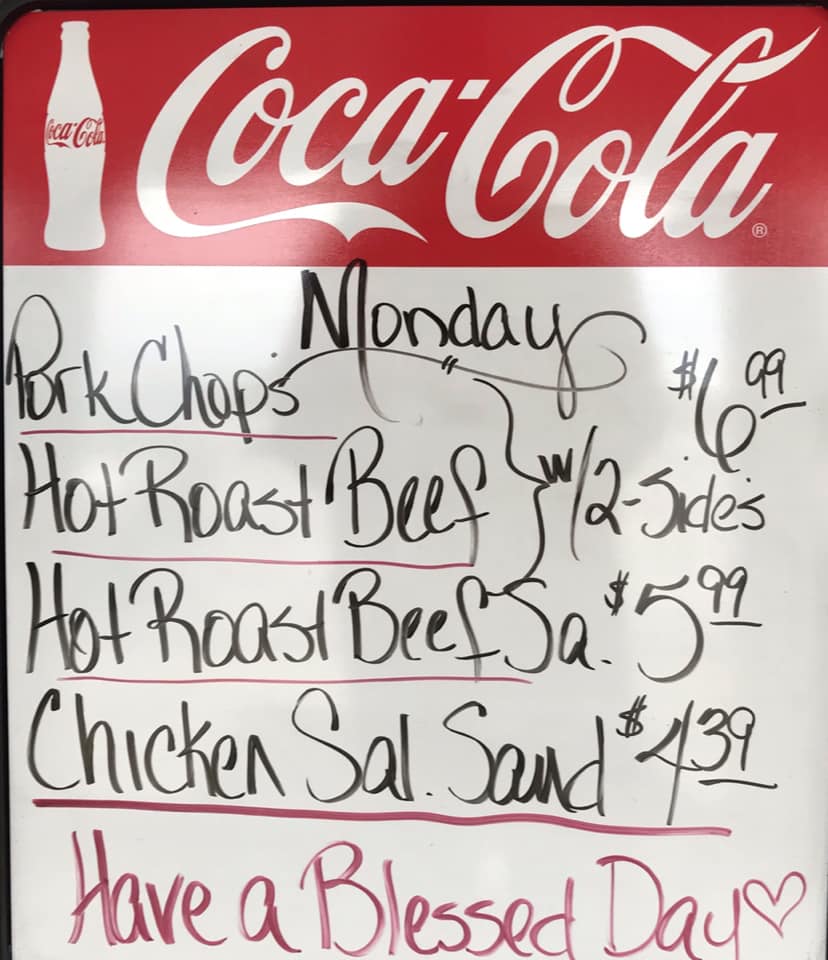 Coca-Cola
Coca-Cola ®
Monday
Pork Chop's $6.99
Hot Roast Beef w/2-Side's
Hot Roast Beef Sa. $5.99
Chicken Sal. Sand $4.39
Have a Blessed Day♡